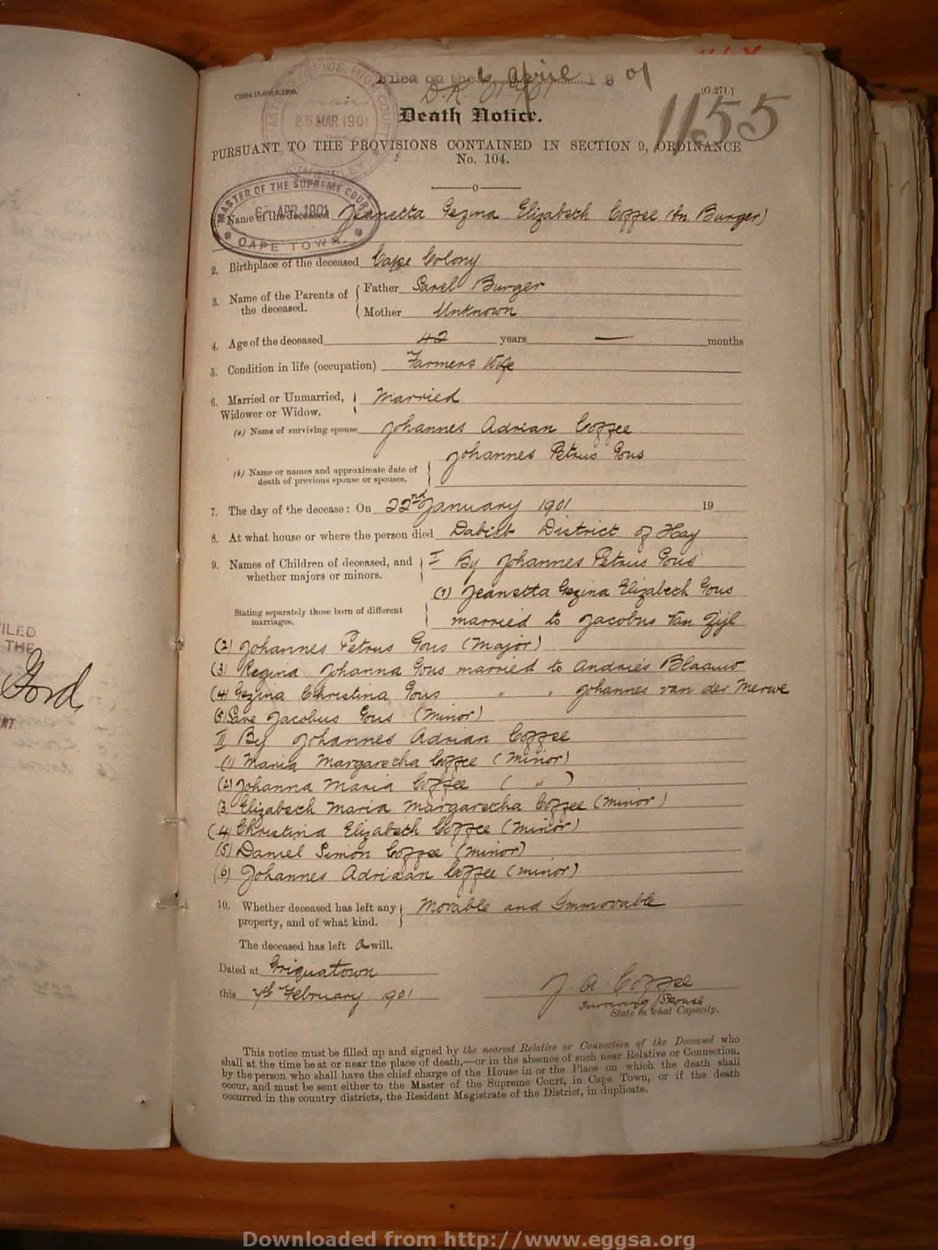 Filed on the 6 April 1901
D.R. 01/01
(G.271.)
1155
25 MAR 1901
Death Notice.
PURSUANT TO THE PROVISIONS CONTAINED IN SECTION 9, ORDINANCE
No. 104.
MASTER OF THE SUPREME COURT
APR 1901
CAPE TOWN
Name of the deceased Jeanetta Gezina Elizabeth Coffee (bn Burger)
2. Birthplace of the deceased Cape Colony
3. Name of the Parents of the deceased. Father Sarel Burger
Mother Unknown
4. Age of the deceased 42 years — months
5. Condition in life (occupation) Farmers Wife
6. Married or Unmarried, Widower or Widow. Married
(a) Name of surviving spouse Johannes Adrian Coffee
Johannes Petrus Gous
(b) Name or names and approximate date of death of previous spouse or spouses.
7. The day of the decease: On 22nd January 1901 19
8. At what house or where the person died District of Hay
9. Names of Children of deceased, and whether majors or minors. I By Johannes Petrus Gous
(1) Jeanetta Gezina Elizabeth Gous
Stating separately those born of different marriages. married to Jacobus Van Zijl
(2) Johannes Petrus Gous (Major)
(3) Regina Johanna Gous married to Andries Blaauw
(4) Gezina Christina Gous " " Johannes van der Merwe
(5) Jacobus Gous (Minor)
II By Johannes Adrian Coffee
(1) Maria Margaretha Coffee (Minor)
(2) Johanna Maria Coffee ( " )
(3) Elizabeth Maria Margaretha Coffee (Minor)
(4) Christina Elizabeth Coffee (Minor)
(5) Daniel Simon Coffee (Minor)
(6) Johannes Adriaan Coffee (Minor)
10. Whether deceased has left any property, and of what kind. Movable and Immovable
The deceased has left a will.
Dated at Griquatown
this 7th February 1901
J. A. Coffee
Surviving Spouse
State in what Capacity.
This notice must be filled up and signed by the nearest Relative or Connection of the Deceased who
shall at the time be at or near the place of death,—or in the absence of such near Relative or Connection,
by the person who shall have the chief charge of the House in or the Place on which the death shall
occur, and must be sent either to the Master of the Supreme Court, in Cape Town, or if the death
occurred in the country districts, the Resident Magistrate of the District, in duplicate.
THE
Ford
Downloaded from http://www.eggsa.org